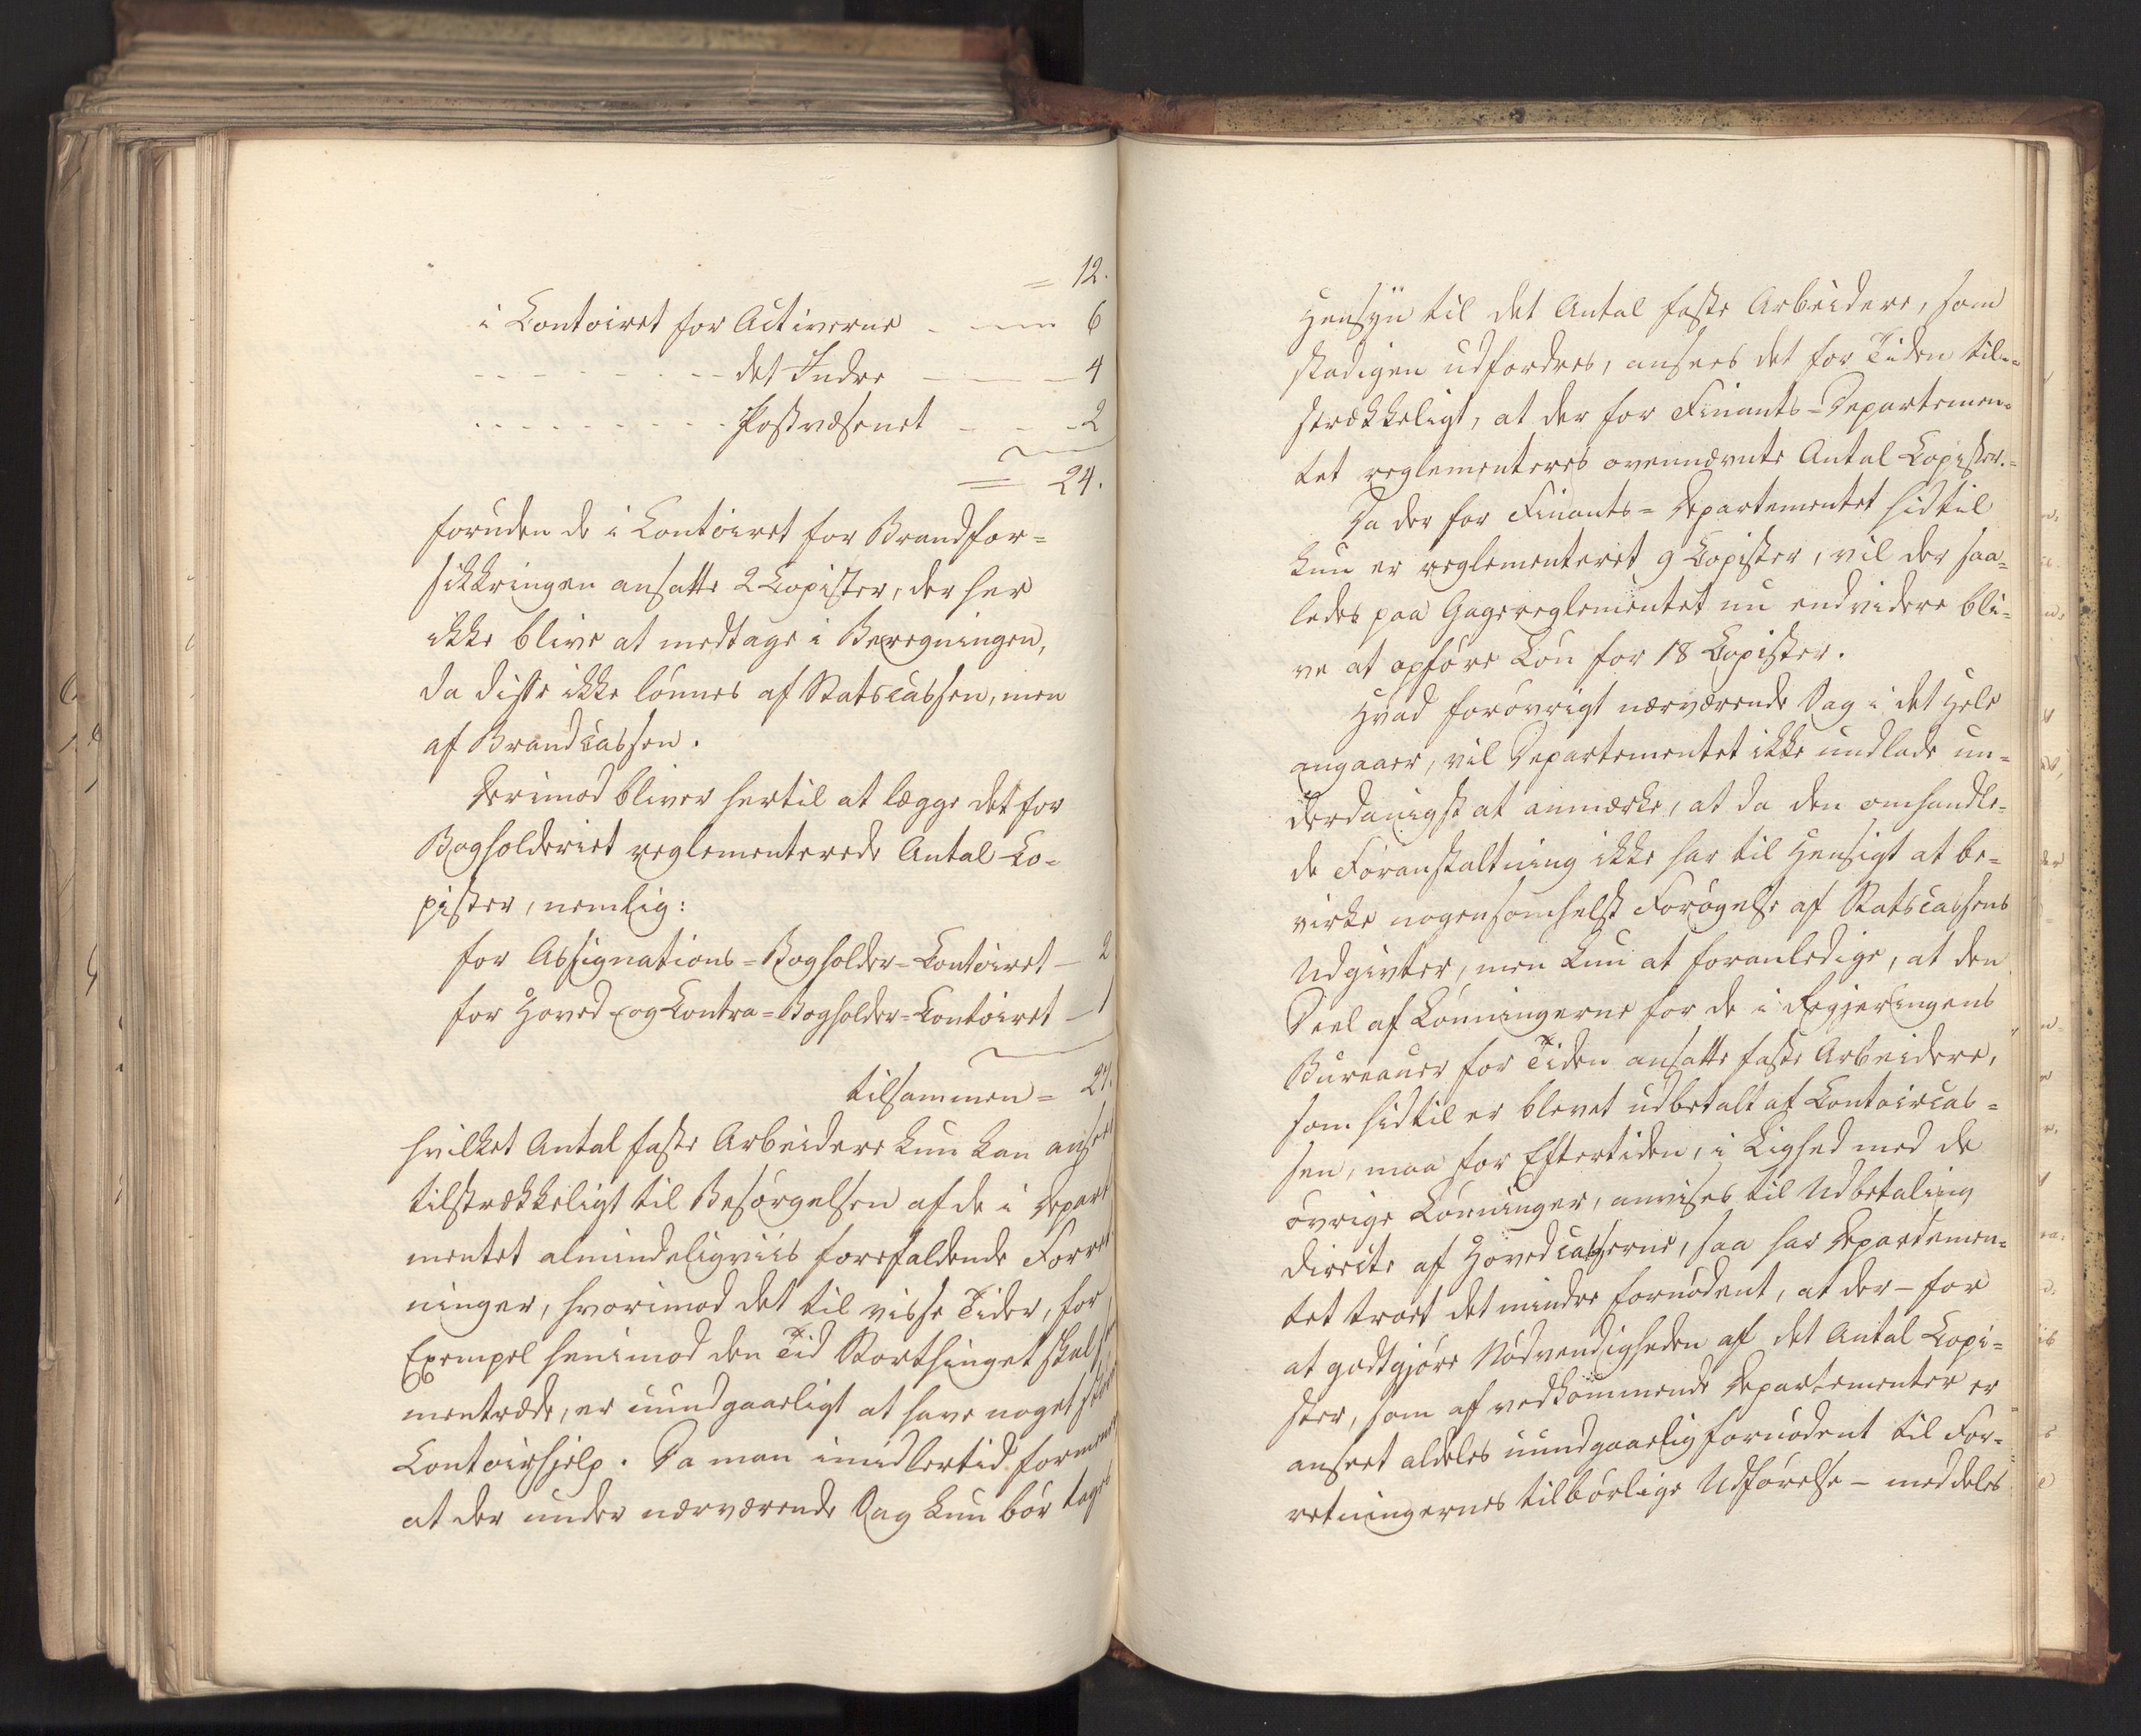 = 12.
i Contoiret for Activerne - — 6
- - - - - - - - det Indre — — 4
- - - - - - - - Postvæsenet - - - 2
= 24.
foruden de i Contoiret for Brandfor=
sikkringen ansatte 2 Copister, der her
ikke blive at medtage i Beregningen,
da disse ikke lönnes af Statscassen, men
af Brandcassen.
Derimod bliver hertil at lægge det for
Bogholderiet reglementerede Antal Co=
pister, nemlig:
for Assignations=Bogholder=Contoiret — 2
for Hoved og Contra=Bogholder=Contoiret — 1
tilsammen = 27.
hvilket Antal faste Arbeidere kun kan ansees
tilstrækkeligt til Besörgelsen af de i Depart
mentet almindeligviis forefaldende Forret
ninger, hvorimod det til visse Tider, for
Exempel henimod den Tid Storthinget skal
mentræde, er uundgaaeligt at have noget
Contoirhjelp. Da man imidlertid formener
at der under nærværende Sag kun bör tages
Hensyn til det Antal faste Arbeidere, som
stadigen udfordres, ansees det for Tiden til=
strækkeligt, at der for Finants=Departemen=
tet reglementeres ovennævnte Antal Copister.=
Da der for Finants=Departementet hidtil
kun er reglementeret 9 Copister, vil der saa=
ledes paa Gagereglementet nu endvidere bli=
ve at opföre Lön for 18 Copister.
Hvad forövrigt nærværende Sag i det Hele
angaaer, vil Departementet ikke undlade un=
derdanigst at anmærke, at da den omhandle=
de Foranstaltning ikke har til Hensigt at be=
virke nogensomhelst Forögelse af Statscassens
Udgivter, men kun at foranledige, at den
Deel af Lönningerne for de i Regjeringens
Bureauer for Tiden ansatte faste Arbeidere,
som hidtil er blevet udbetalt af Contoircas=
sen, maa for Eftertiden, i Lighed med de
övrige Lönninger, anvises til Udbetaling
directe af Hovedcasserne, saa har Departemen=
tet troet det mindre fornödent, at der – for
at godtgjöre Nödvendigheden af det Antal Copi=
ster, som af vedkommende Departementer er
anseet aldeles uundgaaelig fornödent til For=
retningernes tilbörlige Udförelse – meddeles